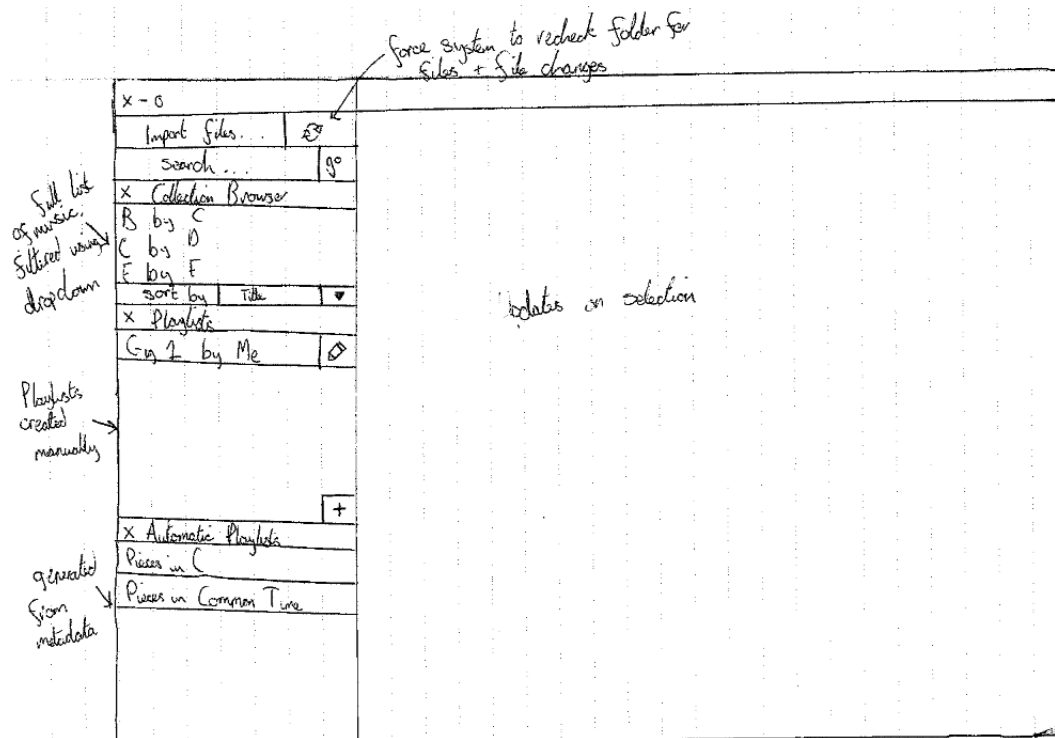 force system to recheck folder for
files + file changes
x - o
Import files...
Search...
full list
of music.
filtered using
dropdown
x Collection Browser
B by C
C by D
E by F
sort by Title
x Playlists
by Me
Playlists
created
manually
+
x Automatic Playlists
Pieces in C
Pieces in Common Time
generated
from
metadata
on selection